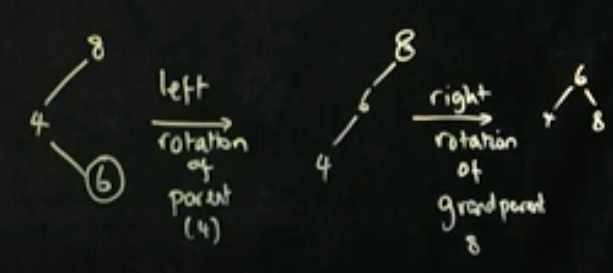 8
4
6
left
rotation
of
parent
(4)
8
6
4
right
rotation
of
grandparent
8
6
4
8